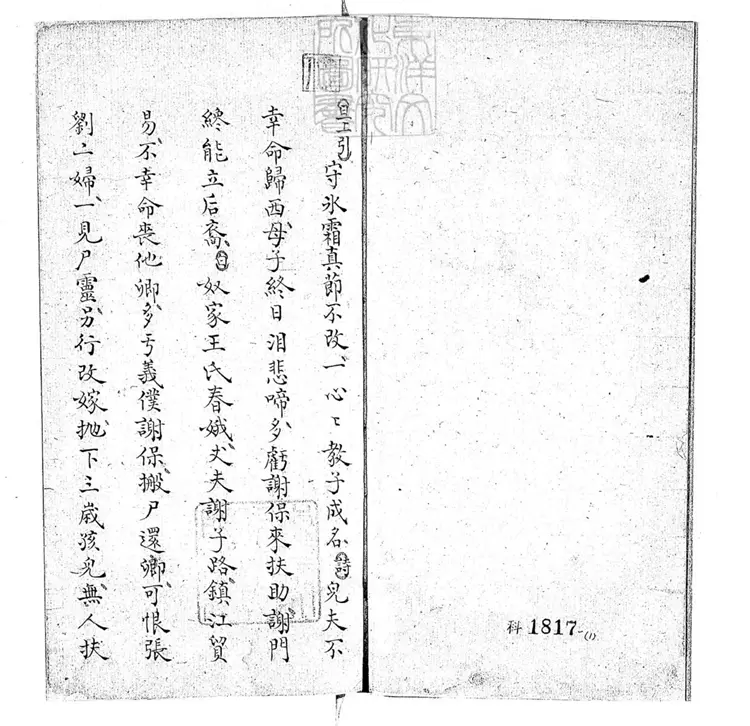 科 1817-(1)
旦上引 守氷霜真節不改一心〻教子成名 詩 兒夫不
幸命歸西母子終日泪悲啼多虧謝保來扶助謝門
終能立后裔 白 奴家王氏春娥丈夫謝子路鎮江貿
易不幸命喪他卿多亏義僕謝保搬尸還卿可恨張
劉二婦一見尸靈另行改嫁抛下三歳孩兒無人扶